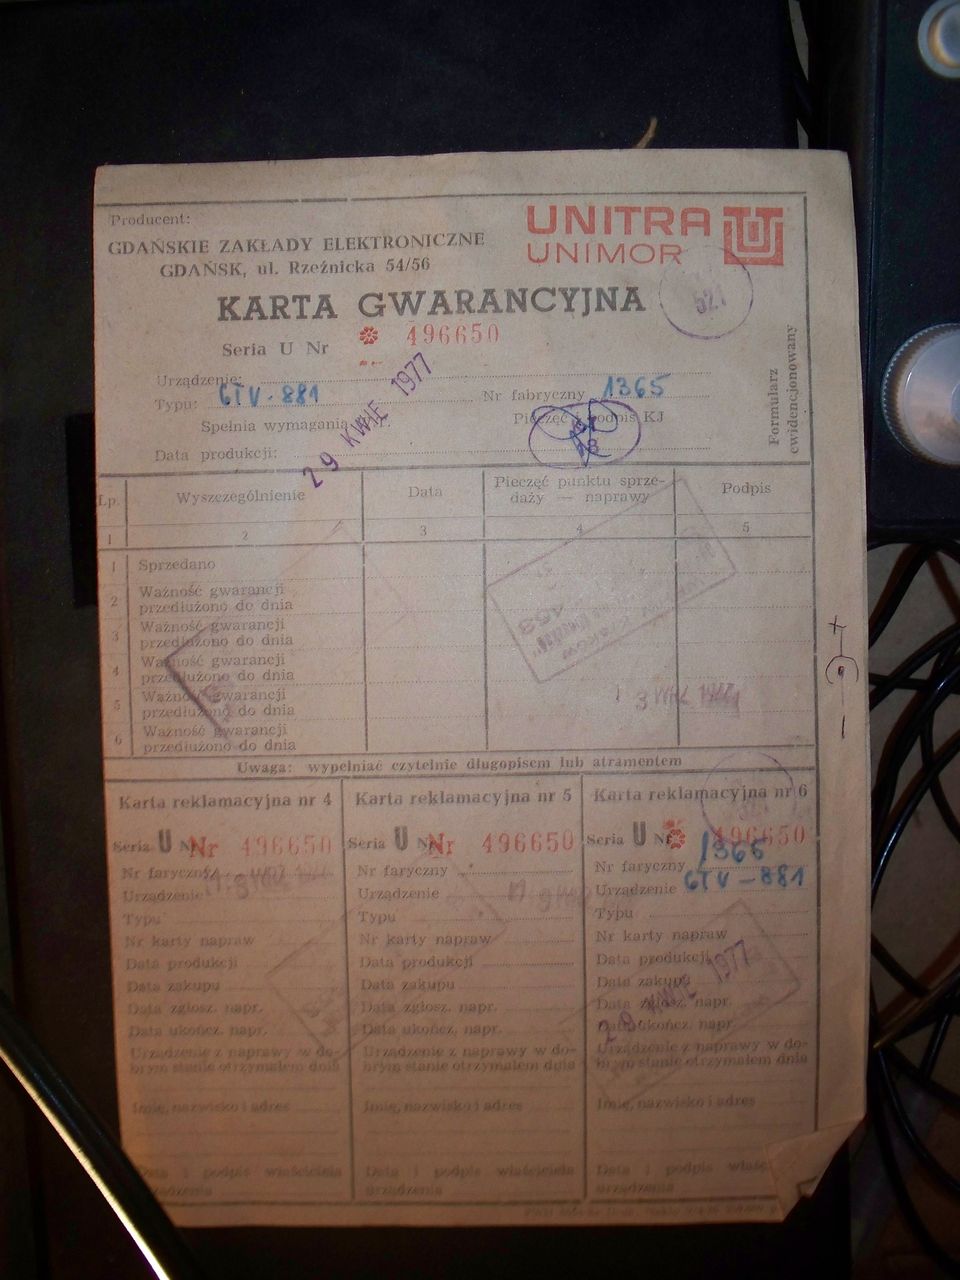 Producent:
GDAŃSKIE ZAKŁADY ELEKTRONICZNE
GDAŃSK, ul. Rzeźnicka 54/56
UNITRA
UNIMOR
KARTA GWARANCYJNA
521
Seria U Nr 496650
Urządzenie:
Typu: GTV-881 Nr fabryczny 1365
Spełnia wymagania Pieczęć i podpis KJ
Data produkcji: 29 KWIE 1977
Formularz
ewidencjonowany
Lp. Wyszczególnienie Data Pieczęć punktu sprze-
daży — naprawy Podpis
1 2 3 4 5
1 Sprzedano
2 Ważność gwarancji
przedłużono do dnia
3 Ważność gwarancji
przedłużono do dnia
4 Ważność gwarancji
przedłużono do dnia
5 Ważność gwarancji
przedłużono do dnia
6 Ważność gwarancji
przedłużono do dnia
Uwaga: wypełniać czytelnie długopisem lub atramentem
Karta reklamacyjna nr 4
Seria U Nr 496650
Nr faryczny
Urządzenie
Typu
Nr karty napraw
Data produkcji
Data zakupu
Data zgłosz. napr.
Data ukończ. napr.
Urządzenie z naprawy w do-
brym stanie otrzymałem dnia
Imię, nazwisko i adres
Data i podpis właściciela
urządzenia
Karta reklamacyjna nr 5
Seria U Nr 496650
Nr faryczny
Urządzenie
Typu
Nr karty napraw
Data produkcji
Data zakupu
Data zgłosz. napr.
Data ukończ. napr.
Urządzenie z naprawy w do-
brym stanie otrzymałem dnia
Imię, nazwisko i adres
Data i podpis właściciela
urządzenia
Karta reklamacyjna nr 6
Seria U Nr 496650
Nr faryczny 1365
Urządzenie GTV-881
Typu
Nr karty napraw
Data produkcji
Data zakupu
Data zgłosz. napr.
29 KWIE 1977
Data ukończ. napr.
Urządzenie z naprawy w do-
brym stanie otrzymałem dnia
Imię, nazwisko i adres
Data i podpis właśc
urządzenia